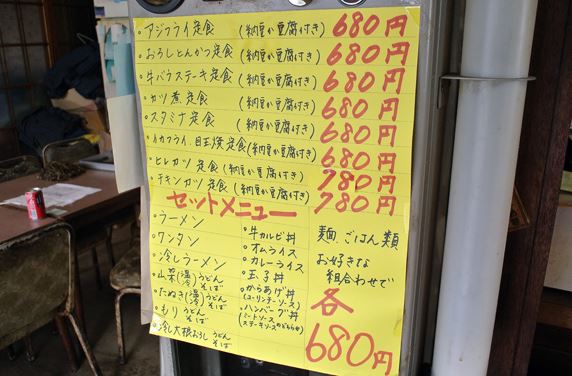 ・アジフライ定食 (納豆か豆腐付き) 680円
・おろしとんかつ定食 (納豆か豆腐付き) 680円
・牛バラステーキ定食 (納豆か豆腐付き) 680円
・カツ煮定食 (納豆か豆腐付き) 680円
・スタミナ定食 (納豆か豆腐付き) 680円
・イカフライ、目玉焼定食 (納豆か豆腐付き) 680円
・ヒレカツ定食 (納豆か豆腐付き) 780円
・チキンカツ定食 (納豆か豆腐付き) 780円
セットメニュー
・ラーメン
・ワンタン
・冷しラーメン
・山菜(温冷)うどんそば
・たぬき(温冷)うどんそば
・もりうどんそば
・冷し大根おろしうどんそば
・牛カルビ丼
・オムライス
・カレーライス
・玉子丼
・からあげ丼
(ユーリンチーソース)
・ハンバーグ丼
(ミートソース
ステーキソースのどちらか)
麺、ごはん類
お好きな
組合わせで
各
680円